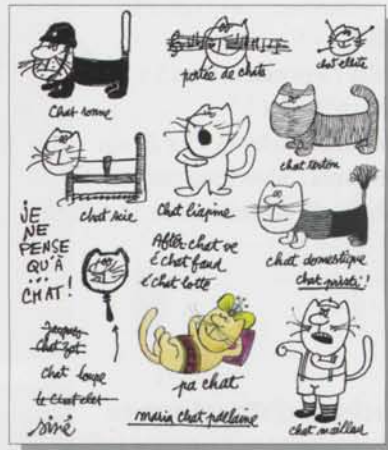 Chat ronne
portée de chats
chat ellite
chat scie
Chat liapine
chat teston
JE
NE
PENSE
QU'À
...
CHAT !
After chat ve
é chat faud
é chat lotte
chat domestique
chat pristi !
Jacques
Chat zot
chat loupe
le Chat elet
pa chat
maria chat pdelaine
chat maillar
siné